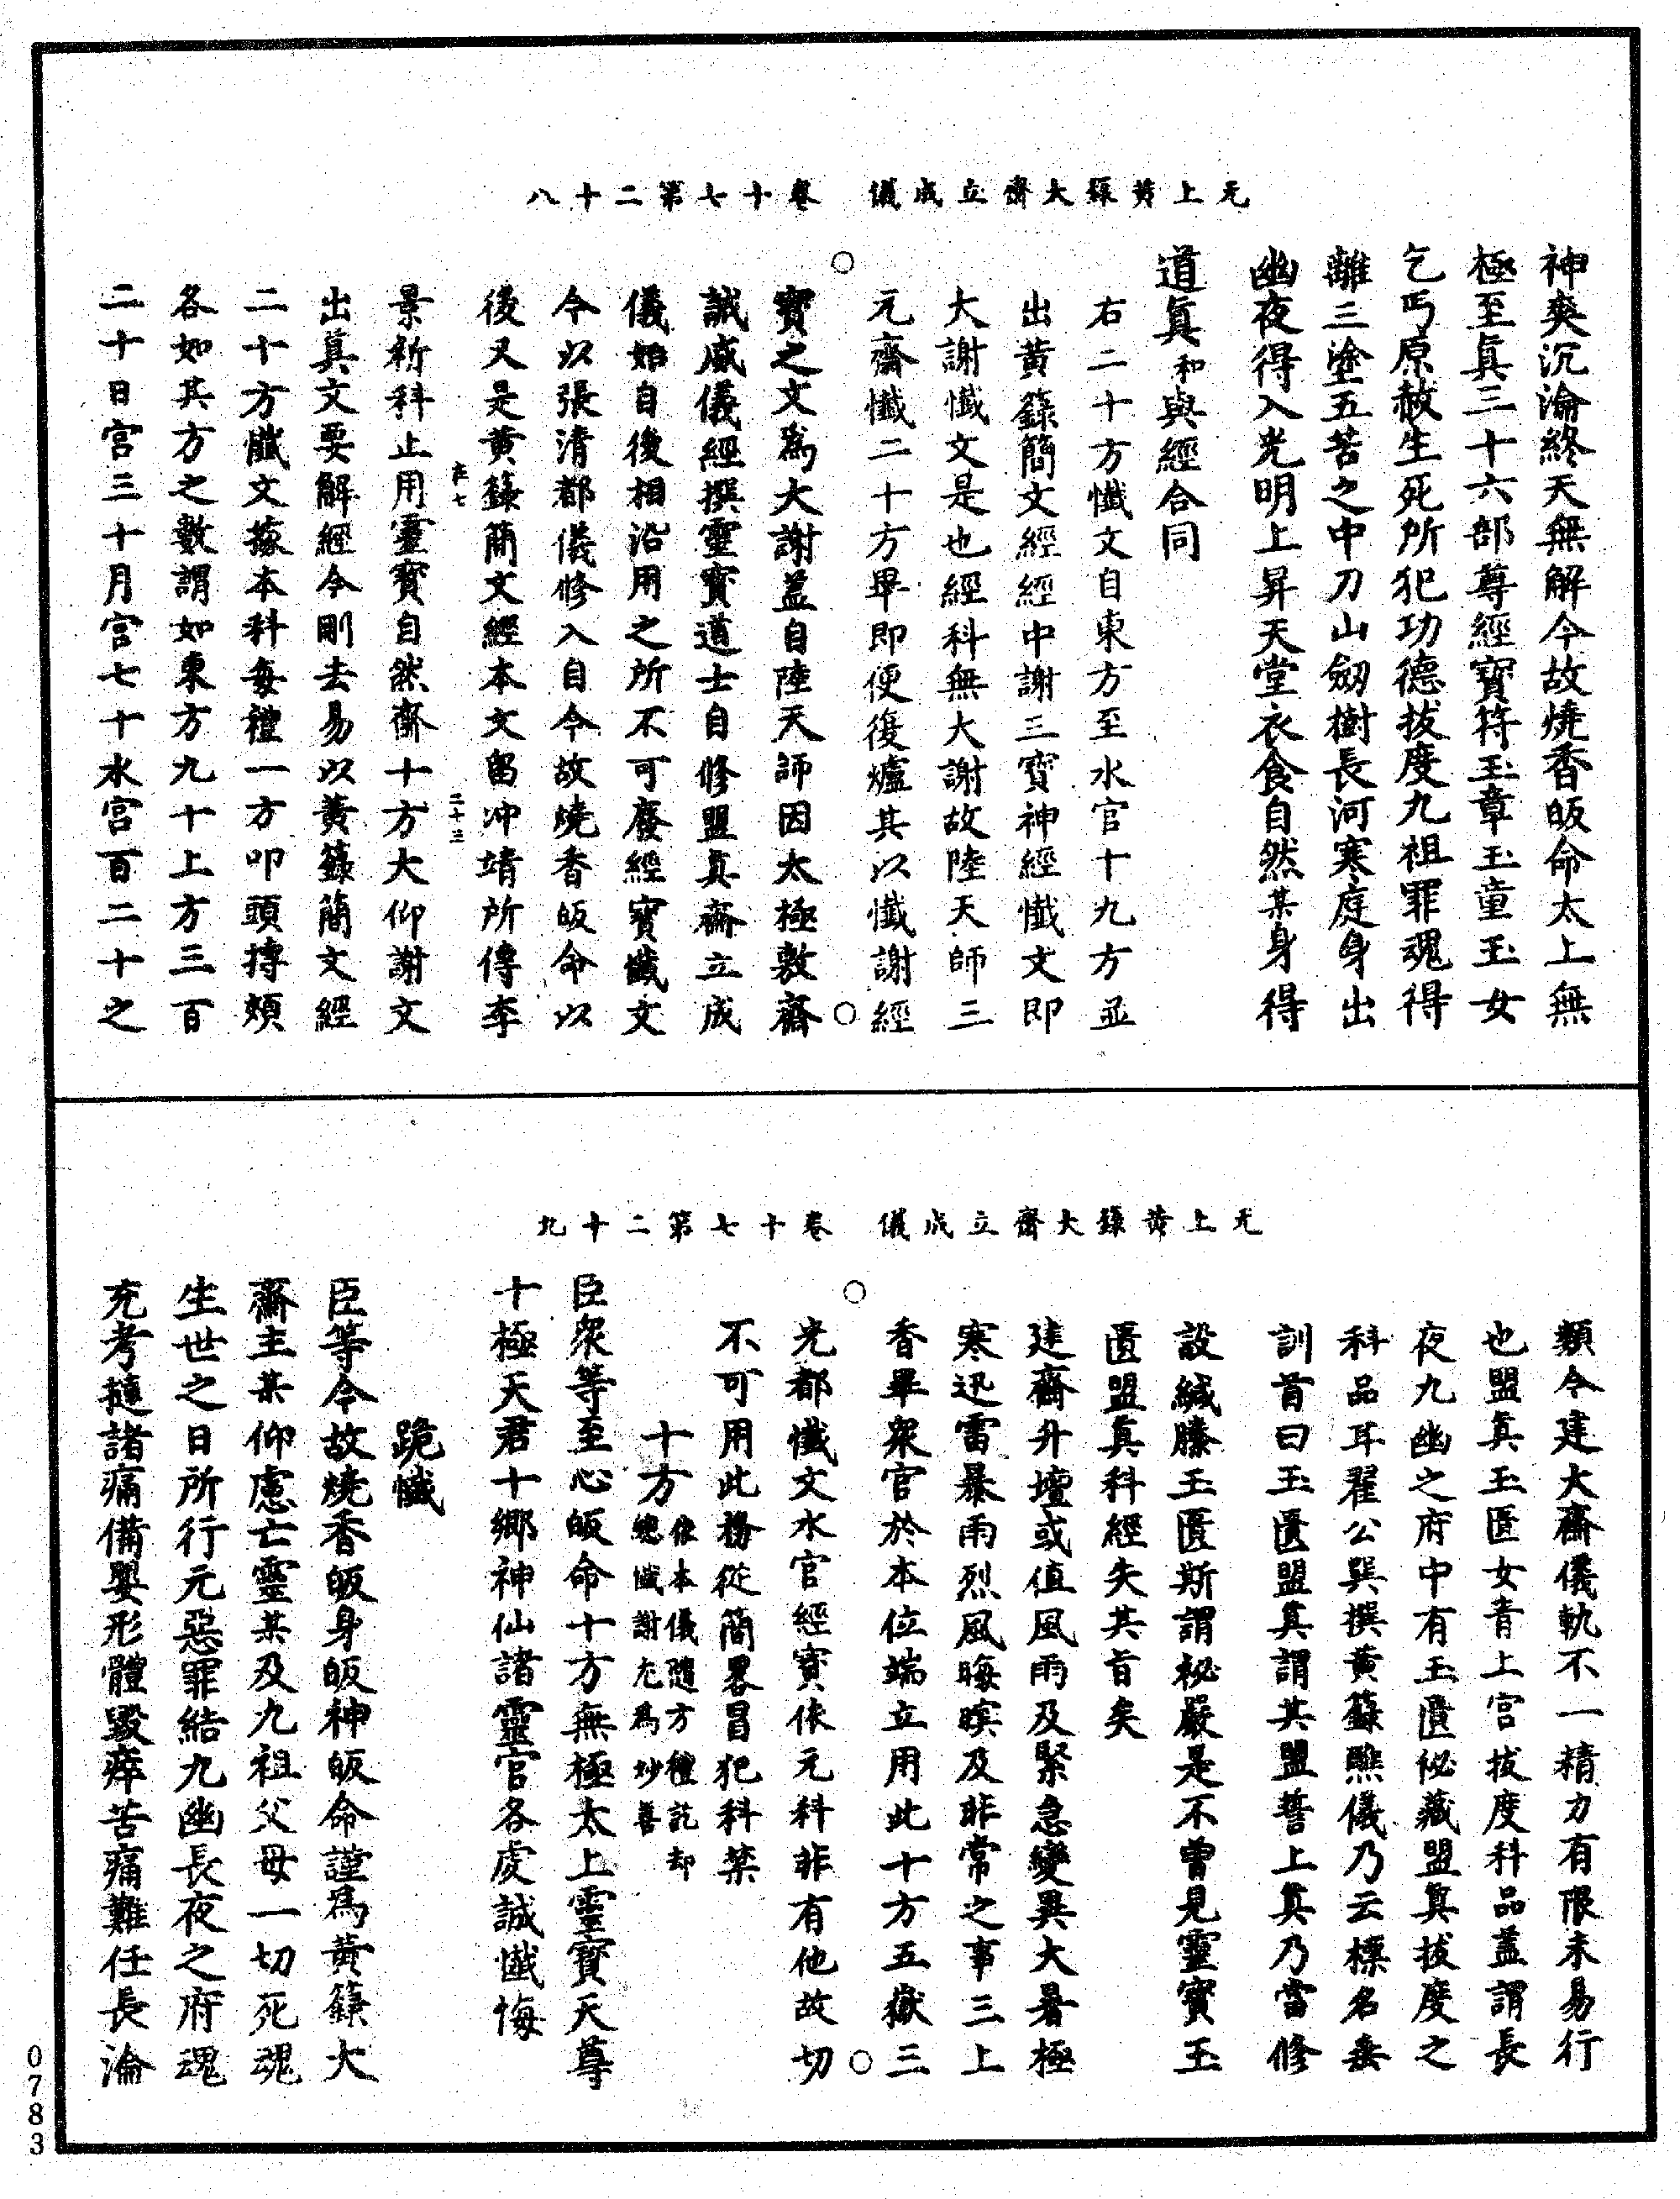 无上黃籙大齋立成儀　卷十七第二十八
神爽沉淪終天無解今故燒香皈命太上無
極至真三十六部尊經寶符玉章玉童玉女
乞丐原赦生死所犯功德拔度九祖罪魂得
離三塗五苦之中刀山劒樹長河寒庭身出
幽夜得入光明上昇天堂衣食自然某身得
道真和與經合同
右二十方懺文自東方至水官十九方並
出黃籙簡文經經中謝三寶神經懺文即
大謝懺文是也經科無大謝故陸天師三
元齋懺二十方畢即便復爐其以懺謝經
寶之文為大謝蓋自陸天師因太極敷齋
誠威儀經撰靈寶道士自修盟真齋立成
儀始自後相沿用之所不可廢經寶懺文
今以張清都儀修入自今故燒香皈命以
後又是黃籙簡文經本文留冲靖所傳李
景祈科止用靈寶自然齋十方大仰謝文
出真文要解經今刪去易以黃籙簡文經
二十方懺文㨿本科每禮一方叩頭搏頰
各如其方之數謂如東方九十上方三百
二十日宮三十月宮七十水宮百二十之
无上黃籙大齋立成儀　卷十七第二十九
類今建大齋儀軌不一精力有限未易行
也盟真玉匱女青上宮拔度科品蓋謂長
夜九幽之府中有玉匱祕藏盟真拔度之
科品耳翟公巽撰黃籙醮儀乃云標名垂
訓首曰玉匱盟真謂其盟誓上真乃當修
設緘縢玉匱斯謂祕嚴是不曾見靈寶玉
匱盟真科經失其旨矣
建齋升壇或值風雨及緊急變異大暑極
寒迅雷暴雨烈風晦暝及非常之事三上
香畢眾官於本位端立用此十方五嶽三
光都懺文水官經寶依元科非有他故切
不可用此務從簡畧冒犯科禁
十方總懺謝尤為妙善依本儀隨方禮訖却
臣眾等至心皈命十方無極太上靈寶天尊
十極天君十鄉神仙諸靈官各虔誠懺悔
跪懺
臣等今故燒香皈身皈神皈命謹為黃籙大
齋主某仰慮亡靈某及九祖父母一切死魂
生世之日所行元惡罪結九幽長夜之府魂
充考撻諸痛備嬰形體毀瘁苦痛難任長淪
0783